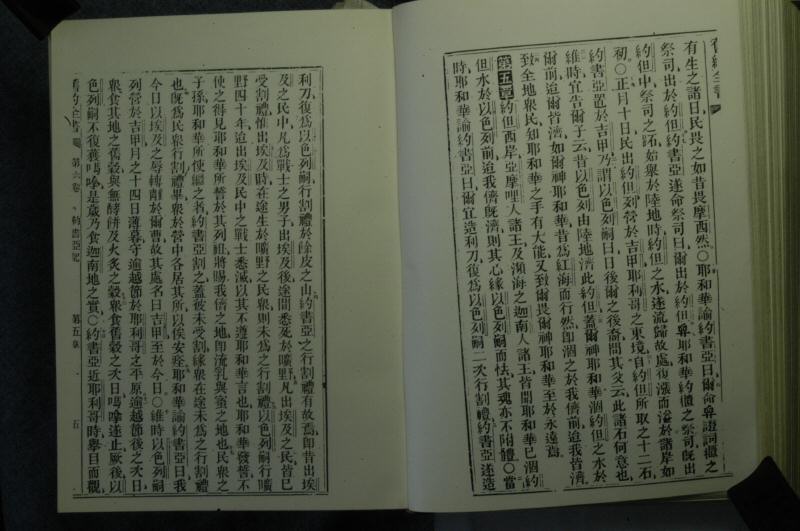 舊約全書
有生之諸日民畏之如昔畏摩西然〇耶和華諭約書亞曰爾命舁證詞櫃之
祭司出於約但約書亞遂命祭司曰爾出於約但舁耶和華約櫃之祭司旣出
約但中祭司之跖始舉於陸地時約但之水遂流歸故處復漲而溢於諸岸如
初〇正月十日民出約但列營於吉甲耶利哥之東境自約但所取之十二石
約書亞置於吉甲乃謂以色列嗣曰日後爾之後裔問其父云此諸石何意也
維時宜告爾子云昔以色列由陸地濟此約但蓋爾神耶和華涸約但之水於
爾前迨爾皆濟如爾神耶和華昔爲紅海而行然卽涸之於我儕前迨我皆濟
致全地衆民知耶和華之手有大能又致爾畏爾神耶和華至於永遠焉
第五章約但西岸亞摩哩人諸王及瀕海之迦南人諸王皆聞耶和華已涸約
但水於以色列前迨我儕旣濟則其心緣以色列嗣而怯其魂亦不附體〇當
時耶和華諭約書亞曰爾宜造利刀復爲以色列嗣二次行割禮約書亞遂造
利刀復爲以色列嗣行割禮於餘皮之山約書亞之行割禮有故焉卽昔出埃
及之民中凡爲戰士之男子出埃及後途間悉死於曠野凡出埃及之民皆已
受割禮惟出埃及時在途生於曠野之民衆則未爲之行割禮以色列嗣行曠
野四十年迨出埃及民中之戰士悉滅以其不遵耶和華言也耶和華發誓不
使之得見耶和華所誓於其列祖將賜我儕之地卽流乳與蜜之地也民衆之
子孫耶和華所使繼之者約書亞割之蓋彼未受割緣衆在途未爲之行割禮
也旣爲民衆行割禮畢衆於營中各居其所以俟安痊耶和華諭約書亞曰我
今日以埃及之辱轉離於爾曹故其處名曰吉甲至於今日〇維時以色列嗣
列營於吉甲月之十四日薄暮守逾越節於耶利哥之平原逾越節後之次日
衆食其地之舊穀與無酵餅及火炙之穀衆食舊穀之次日嗎嗱遂止厥後以
色列嗣不復獲嗎嗱是歲乃食迦南地之實〇約書亞近耶利哥時舉目而觀
舊約全書 第六卷 約書亞記 第五章 五